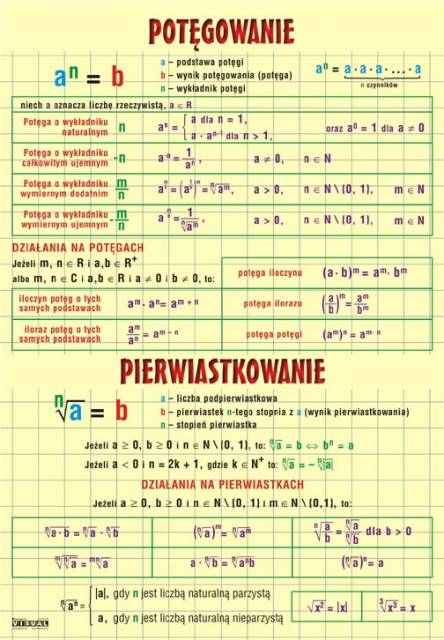 POTĘGOWANIE
aⁿ = b
a – podstawa potęgi
b – wynik potęgowania (potęga)
n – wykładnik potęgi
aⁿ = a · a · a · ... · a
n czynników
niech a oznacza liczbę rzeczywistą, a ∈ R
Potęga o wykładniku naturalnym n aⁿ = { a dla n = 1, a · aⁿ⁻¹ dla n > 1, oraz a⁰ = 1 dla a ≠ 0
Potęga o wykładniku całkowitym ujemnym -n a⁻ⁿ = 1/aⁿ, a ≠ 0, n ∈ N
Potęga o wykładniku wymiernym dodatnim m/n a^(m/n) = (a^(1/n))^m = ⁿ√aᵐ, a > 0, n ∈ N \ {0, 1}, m ∈ N
Potęga o wykładniku wymiernym ujemnym -m/n = 1/ⁿ√aᵐ, a > 0, n ∈ N \ {0, 1}, m ∈ N
DZIAŁANIA NA POTĘGACH
Jeżeli m, n ∈ R i a,b ∈ R⁺
albo m, n ∈ C i a,b ∈ R i a ≠ 0 i b ≠ 0, to:
potęga iloczynu (a · b)ᵐ = aᵐ · bᵐ
iloczyn potęg o tych samych podstawach aᵐ · aⁿ = aᵐ ⁺ ⁿ
potęga ilorazu (a/b)ᵐ = aᵐ/bᵐ
iloraz potęg o tych samych podstawach aᵐ/aⁿ = aᵐ ⁻ ⁿ
potęga potęgi (aᵐ)ⁿ = aᵐ· ⁿ
PIERWIASTKOWANIE
ⁿ√a = b
a – liczba podpierwiastkowa
b – pierwiastek n-tego stopnia z a (wynik pierwiastkowania)
n – stopień pierwiastka
Jeżeli a ≥ 0, b ≥ 0 i n ∈ N \ {0, 1}, to: ⁿ√a = b ⇔ bⁿ = a
Jeżeli a < 0 i n = 2k + 1, gdzie k ∈ N⁺ to: ⁿ√a = – ⁿ√|a|
DZIAŁANIA NA PIERWIASTKACH
Jeżeli a ≥ 0, b ≥ 0 i n ∈ N \ {0, 1} i m ∈ N \ {0,1}, to:
ⁿ√a · b = ⁿ√a · ⁿ√b
(ⁿ√a)ᵐ = ⁿ√aᵐ
ⁿ√(a/b) = ⁿ√a/ⁿ√b dla b > 0
ᵐ√ⁿ√a = ᵐⁿ√a
a · ⁿ√b = ⁿ√aⁿb
(ⁿ√a)ⁿ = a
ⁿ√aⁿ = { |a|, gdy n jest liczbą naturalną parzystą
a, gdy n jest liczbą naturalną nieparzystą
√x² = |x|
³√x³ = x
VISUAL